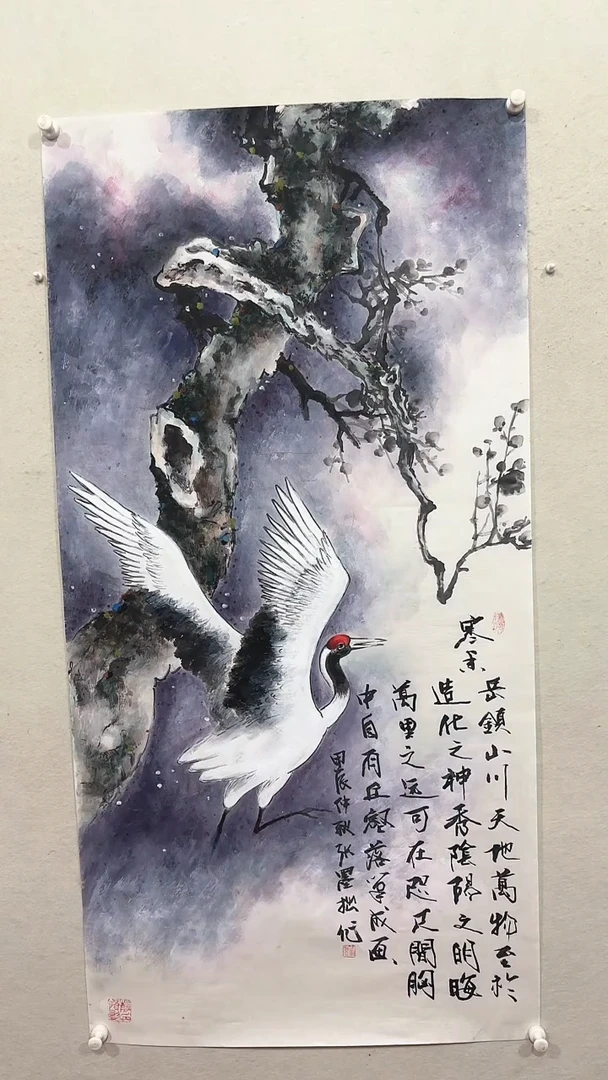 寒香
岳鎮山川天地萬物至於
造化之神秀陰陽之明晦
萬里之遥可在咫尺間胸
中自有丘壑落筆成画
甲辰仲秋张墨拙作